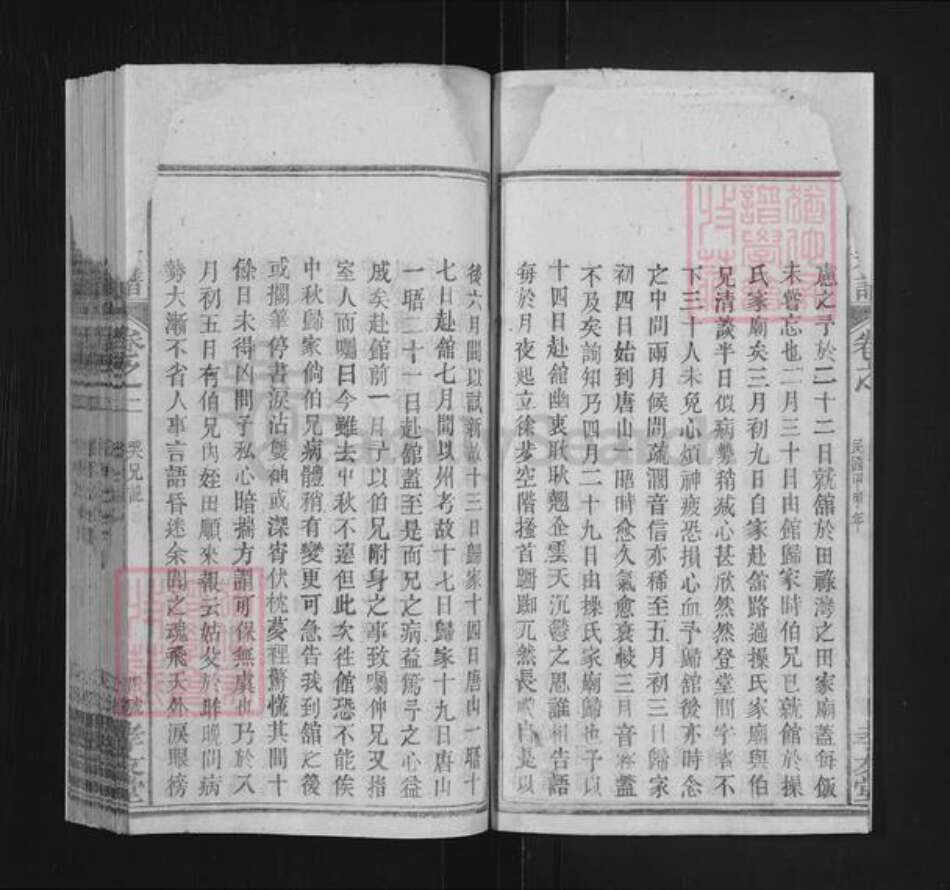 慮之予於二十二日就舘於田祿灣之田家廟蓋每飯
未嘗忘也二月三十日由館歸家時伯兄已就館於操
氏家廟矣三月初九日自家赴舘路過操氏家廟與伯
兄清談半日似病勢稍減心甚欣然然登堂問字者不
下三十人未免心煩神疲恐損心血予歸舘後亦時念
之中間兩月候間疏濶音信亦稀至五月初三日歸家
初四日始到唐山一晤時愈久氣愈衰較三月音容蓋
不及矣詢知乃四月二十九日由操氏家廟歸也予以
十四日赴舘幽衷耿耿翹企雲天沉鬱之思誰相告語
每於月夜起立徐步空階搔首踟蹰兀然長嘆自是以
後六月間以試新故十三日歸家十四日唐山一晤十
七日赴舘七月間以州考故十七日歸家十九日唐山
一晤二十一日赴舘蓋至是而兄之病益篤予之心益
戚矣赴舘前一月予以伯兄附身之事致囑仲兄又指
室人而囑曰今雖去中秋不遠但此次徃館恐不能俟
中秋歸家倘伯兄病體稍有變更可急告我到舘之後
或擱筆停書淚沾雙袖或深宵伏枕夢裡驚慌其間十
餘日未得凶問予私心暗揣方謂可保無虞也乃於八
月初五日有伯兄內姪田順來報云姑父於昨晚問病
勢大漸不省人事言語昏迷余聞之魂飛天外淚眼滂
卷之二
哭兄記
孝友堂